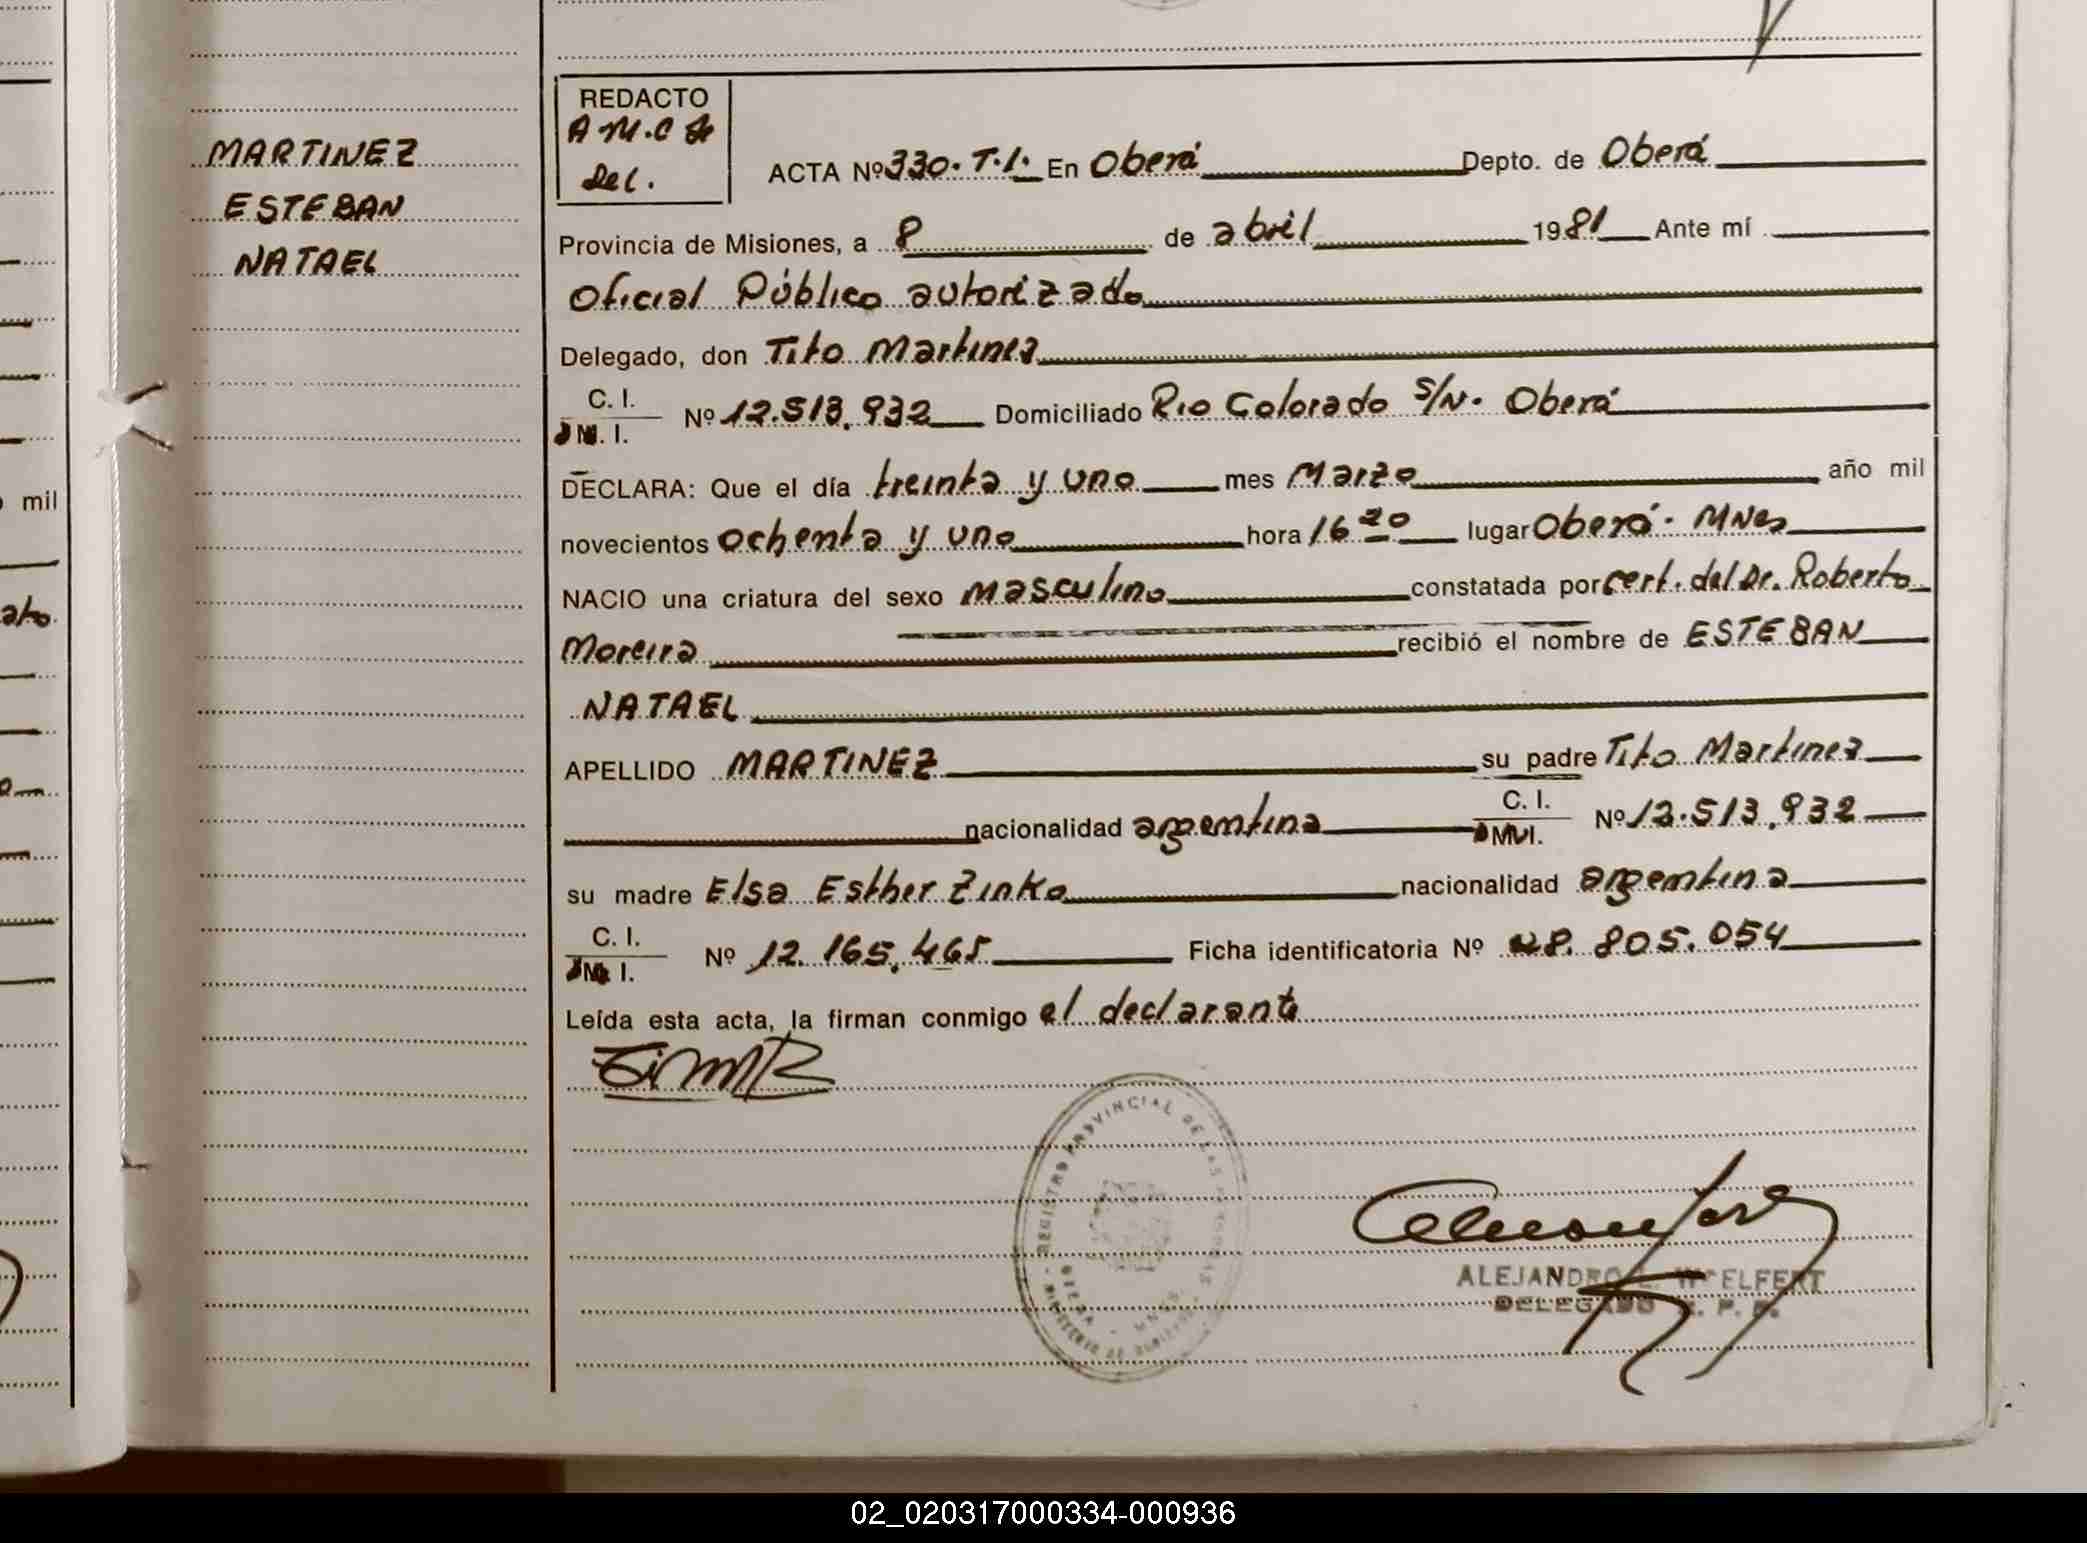 MARTINEZ
ESTEBAN
NATAEL
REDACTO
A M.C de
Del.
ACTA Nº 330. T.I. En Oberá Depto. de Oberá
Provincia de Misiones, a 8 de abril 1981 Ante mí
Oficial Público autorizado
Delegado, don Tito Martinez
C. I.
M. I. Nº 12.513.932 Domiciliado Rio Colorado S/N. Oberá
DECLARA: Que el día treinta y uno mes Marzo año mil
novecientos ochenta y uno hora 16 20 lugar Oberá. Mnes
NACIO una criatura del sexo masculino constatada por cert. del Dr. Roberto
Moreira recibió el nombre de ESTEBAN
NATAEL
APELLIDO MARTINEZ su padre Tito Martinez
nacionalidad argentina C. I.
M.I. Nº 12.513.932
su madre Elsa Esther Zinko nacionalidad argentina
C. I.
M. I. Nº 12.165.465 Ficha identificatoria Nº 28.805.054
Leída esta acta, la firman conmigo el declarante
REGISTRO PROVINCIAL DE LAS PERSONAS
MINISTERIO DE GOBIERNO
OBERA - MNES
ALEJANDRO WOELFERT
DELEGADO
mil
ato
02_020317000334-000936